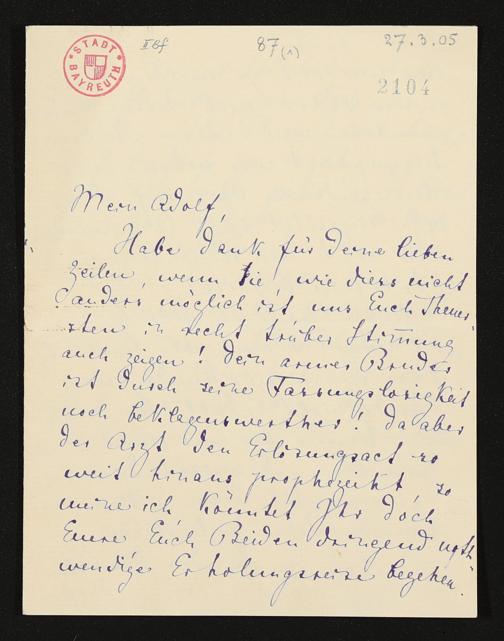 STADT BAYREUTH
II Bf
87 (1)
27.3.05
2104
Mein Adolf,
Habe Dank für Deine lieben
Zeilen, wenn sie, wie diess nicht
anders möglich ist uns Euch Theuer-
sten in recht trüber Stimmung
auch zeigen! Dein armer Bruder
ist durch seine Fassungslosigkeit
noch beklagenswerther! Da aber
der Arzt den Erlösungsact so
weit hinaus prophezeiht so
meine ich könntet Ihr doch
Eure Euch Beiden dringend noth-
wendige Erholungsreise begehen.